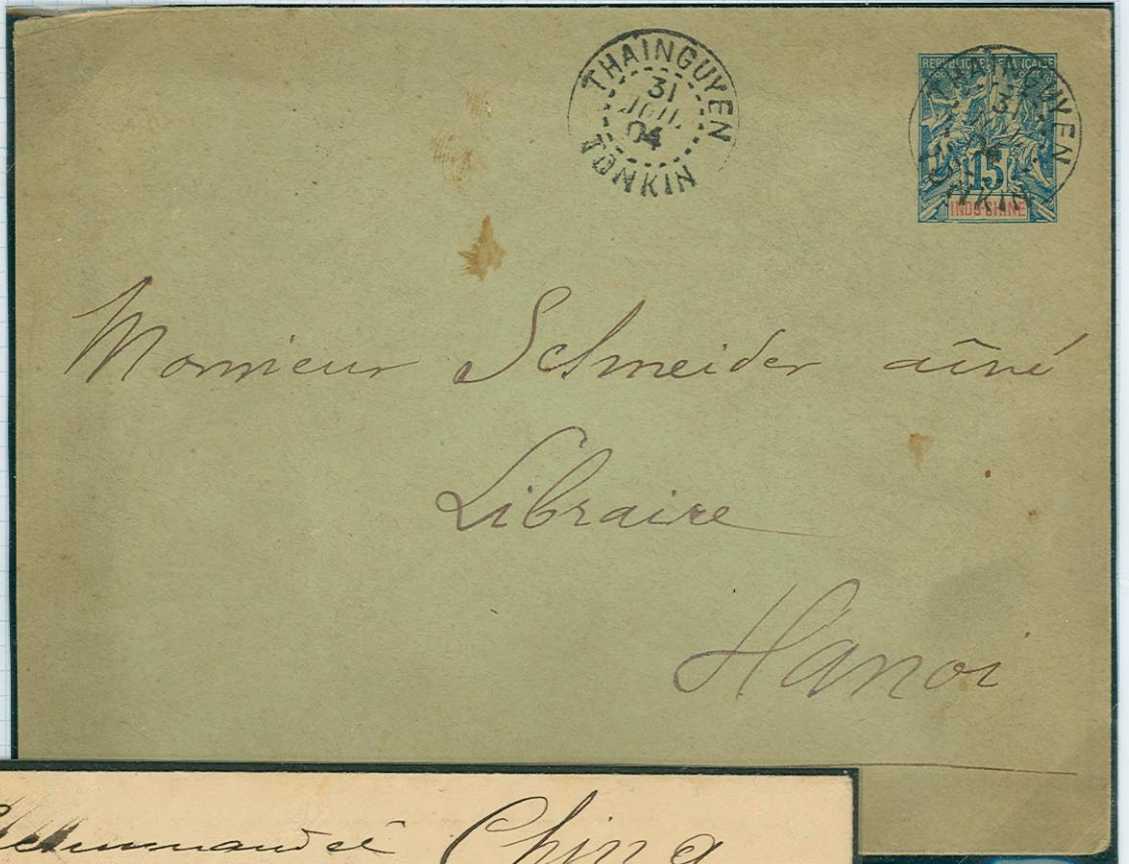 THAINGUYEN
31
JUIL
04
TONKIN
REPUBLIQUE FRANÇAISE
15
INDO-CHINE
Monsieur Schneider aîné
Libraire
Hanoi
China